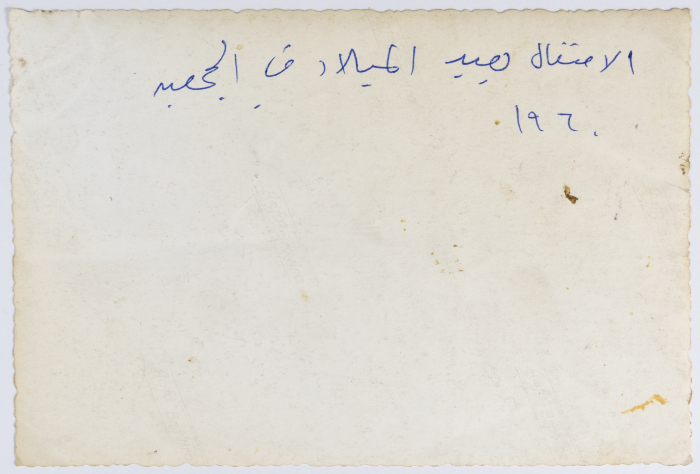 الاحتفال بعيد الميلاد في الجمعيه
١٩٦٠